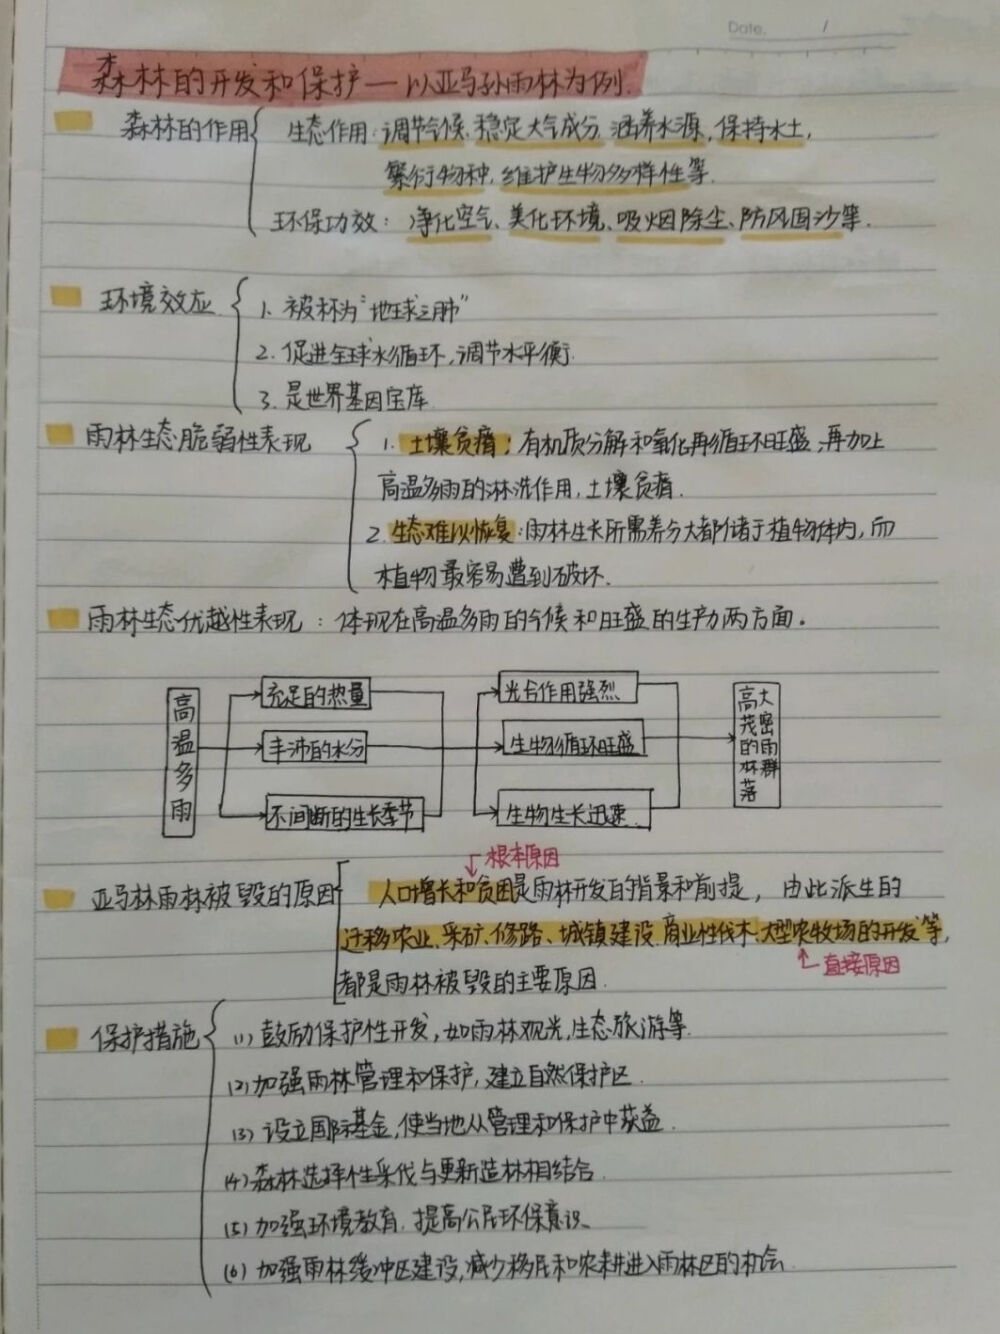 Date. /
森林的开发和保护—以亚马孙雨林为例.
森林的作用
生态作用:调节气候、稳定大气成分、涵养水源,保持水土,
繁衍物种,维护生物多样性等.
环保功效: 净化空气、美化环境、吸烟除尘、防风固沙等.
环境效应
1. 被称为"地球之肺"
2. 促进全球水循环,调节水平衡.
3. 是世界基因宝库.
雨林生态脆弱性表现
1. 土壤贫瘠: 有机质分解和氧化再循环旺盛,再加上
高温多雨的淋洗作用,土壤贫瘠.
2. 生态难以恢复:雨林生长所需养分大都储于植物体内,而
植物最容易遭到破坏.
雨林生态优越性表现: 体现在高温多雨的气候和旺盛的生产力两方面。
高温多雨
充足的热量
丰沛的水分
不间断的生长季节
光合作用强烈
生物循环旺盛
生物生长迅速.
高大茂密的雨林群落
根本原因
亚马林雨林被毁的原因
人口增长和贫困是雨林开发的背景和前提, 由此派生的
迁移农业、采矿、修路、城镇建设、商业性伐木、大型农牧场的开发等,
直接原因
都是雨林被毁的主要原因.
保护措施
(1) 鼓励保护性开发,如雨林观光,生态旅游等.
(2)加强雨林管理和保护,建立自然保护区.
(3) 设立国际基金,使当地从管理和保护中获益.
(4)森林选择性采伐与更新造林相结合.
(5)加强环境教育,提高公民环保意识、
(6)加强雨林缓冲区建设,减少移民和农耕进入雨林区的机会.